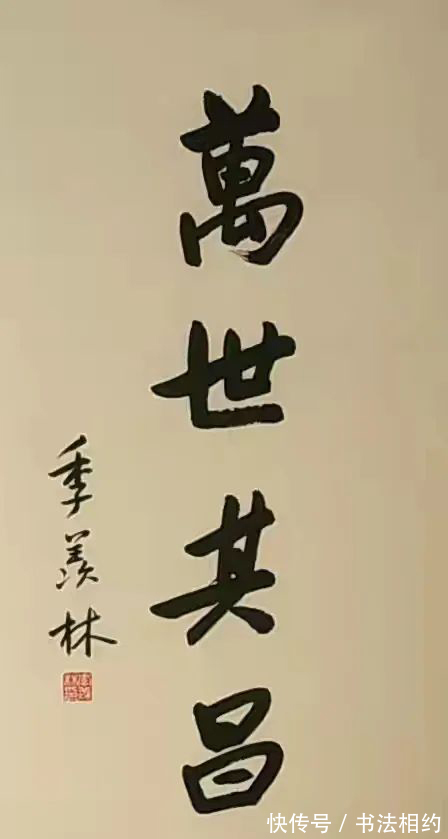 萬世其昌
季羨林
快传号／书法相约